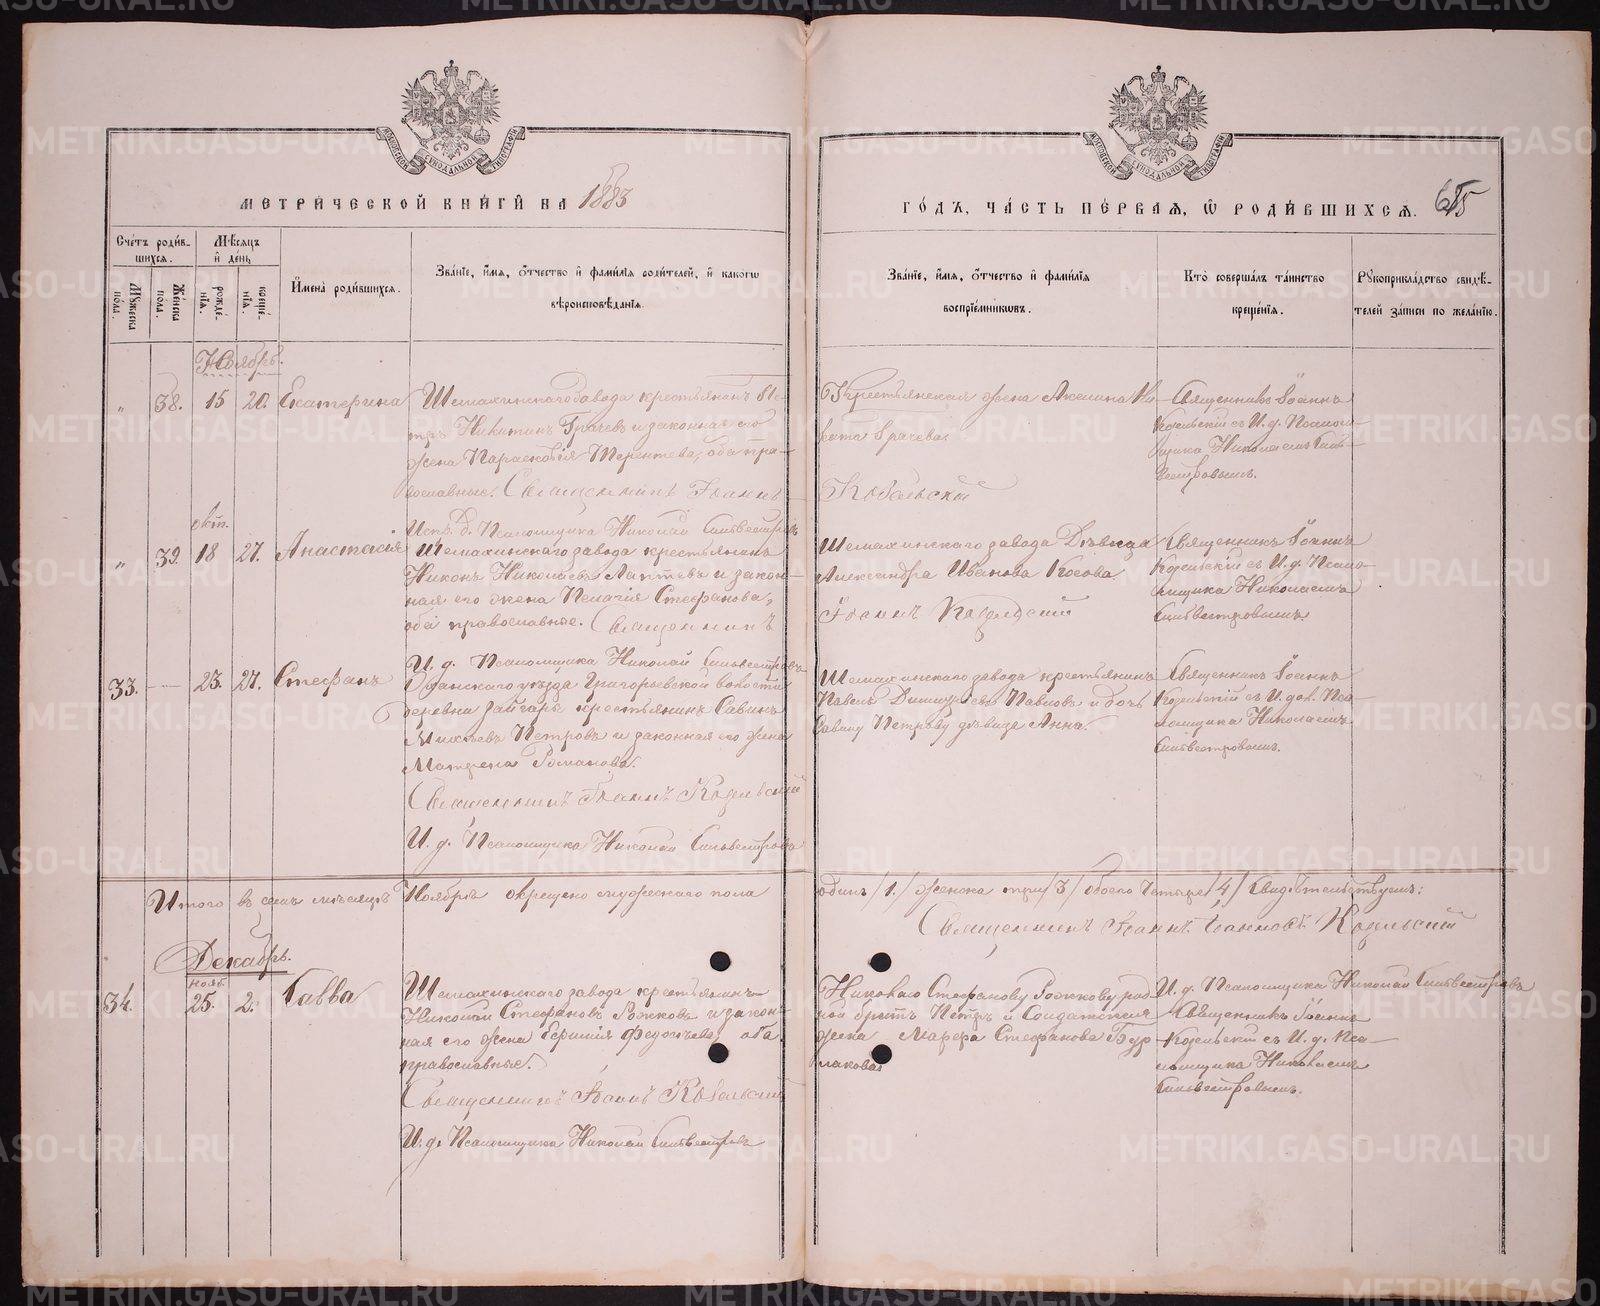 МЕТРИЧЕСКОЙ КНИГИ НА 1883
ГОДЪ, ЧАСТЬ ПЕРВАЯ, Ѡ РОДИВШИХСЯ.
Счетъ родив-
шихся.
Мѣсяцъ
и день
Мужеска пола.
Женска пола.
рожде-
нія.
креще-
нія.
Имена родившихся.
Званіе, имя, отчество и фамилія родителей, и какогѡ
вѣроисповѣданія.
Званіе, имя, отчество и фамилія
воспріемниковъ.
Кто совершалъ таинство
крещенія.
Рукоприкладство свидѣ-
телей записи по желанію.
Ноябрь.
" 38. 15 20. Екатерина
Шемахинскаго завода крестьянинъ
Никитинъ Грачевъ и законная его
жена Парасковія Терентева, оба пра-
вославные. Священникъ Іоаннъ
Крестьянская жена Акелина Ни-
Грачева.
Козельскій
Священникъ Іоаннъ
Козельскій съ И. д. Псалом-
щика Николаемъ Силь-
вестровымъ.
окт.
" 39. 18 27. Анастасія
Исп. д. Псаломщика Николай Сильвестровъ
Шемахинскаго завода крестьянинъ
Никонъ Николаевъ Лаптевъ и закон-
ная его жена Пелагія Стефанова,
оба православные. Священникъ
Шемахинскаго завода Дѣвица
Александра Иванова Косова
Іоаннъ Козельскій
Священникъ Іоаннъ
Козельскій съ И. д. Псало-
мщика Николаемъ
Сильвестровымъ.
33. — 23. 27. Стефанъ
И. д. Псаломщика Николай Сильвестровъ
уѣзда Григорьевской волости
деревни крестьянинъ Савинъ
Михѣевъ Петровъ и законная его жена
Матрена Романова.
Священникъ Іоаннъ Козельскій
И. д. Псаломщика Николай Сильвестровъ
Шемахинскаго завода крестьянинъ
Павелъ Павловъ и дочь
Савину Петрову дѣвица Анна.
Священникъ Іоаннъ
Козельскій съ И. дол. Пса-
ломщика Николаемъ
Сильвестровымъ.
Итого въ семъ мѣсяцѣ Ноябрѣ окрещено мужескаго пола
одинъ /1./ женска три /3/ обоего четыре /4/ Свидѣтельствуемъ:
Священникъ Іоаннъ Іоанновъ Козельскій
Декабрь.
нояб.
34. 25. 2. Савва
Шемахинскаго завода крестьянинъ
Николай Стефановъ Рожковъ и закон-
ная его жена Федотьева, оба
православные.
Священникъ Іоаннъ Козельскій
И. д. Псаломщика Николай Сильвестровъ
Николаю Стефанову Рожкову род-
ной братъ Петръ и Солдатская
жена Марфа Стефанова Бур-
лакова
И. д. Псаломщика Николай Сильвестровъ
Священникъ Іоаннъ
Козельскій съ И. д. Пса-
ломщика Николаемъ
Сильвестровымъ.
METRIKI.GASO-URAL.RU